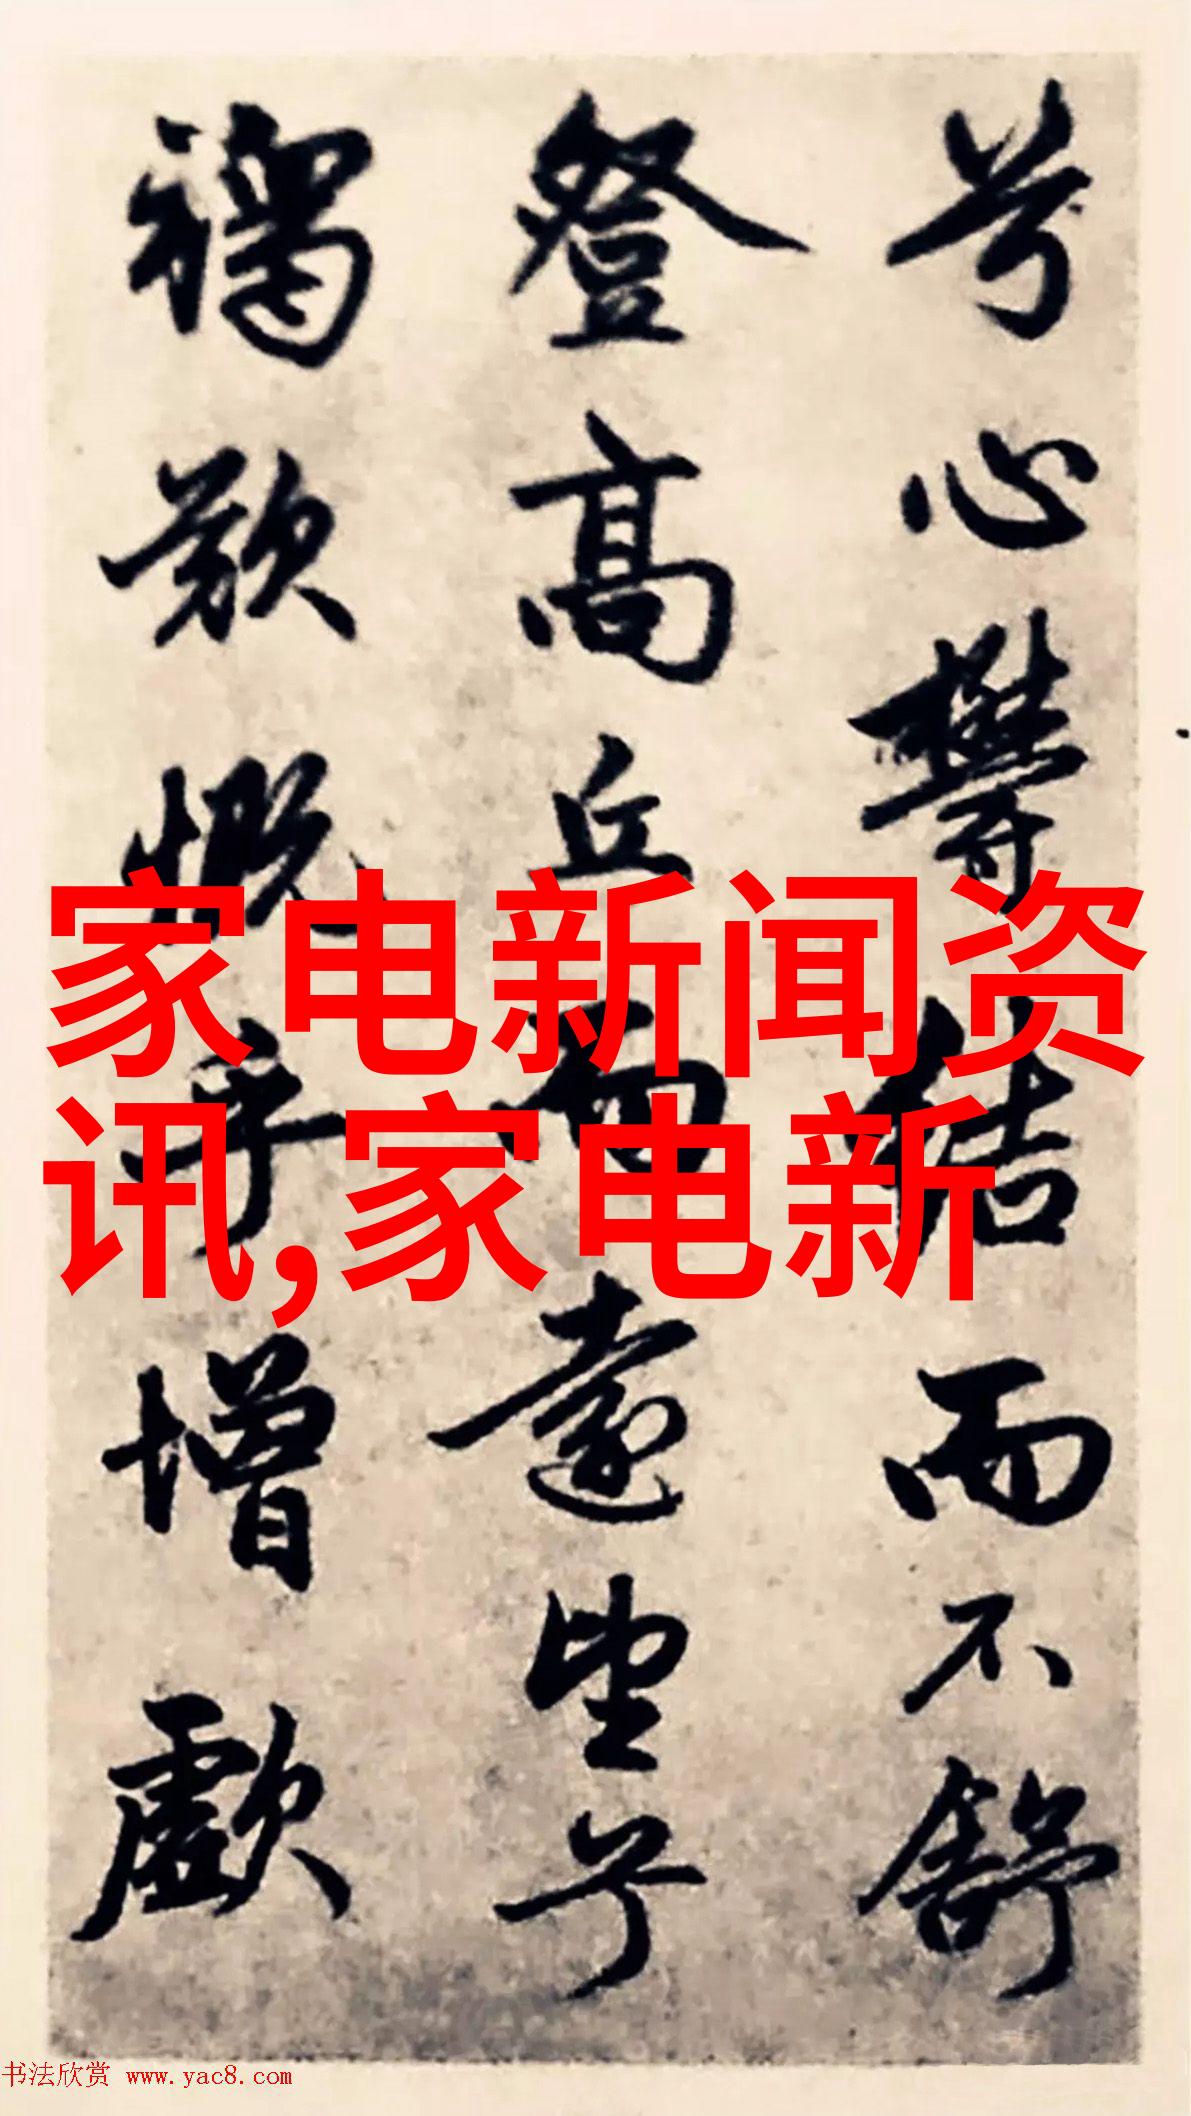 兮心鬱結而不舒
登高丘而遠望兮
歎慨乎增歔
家电新闻资
讯,家电新
书法欣赏 www.yac8.com